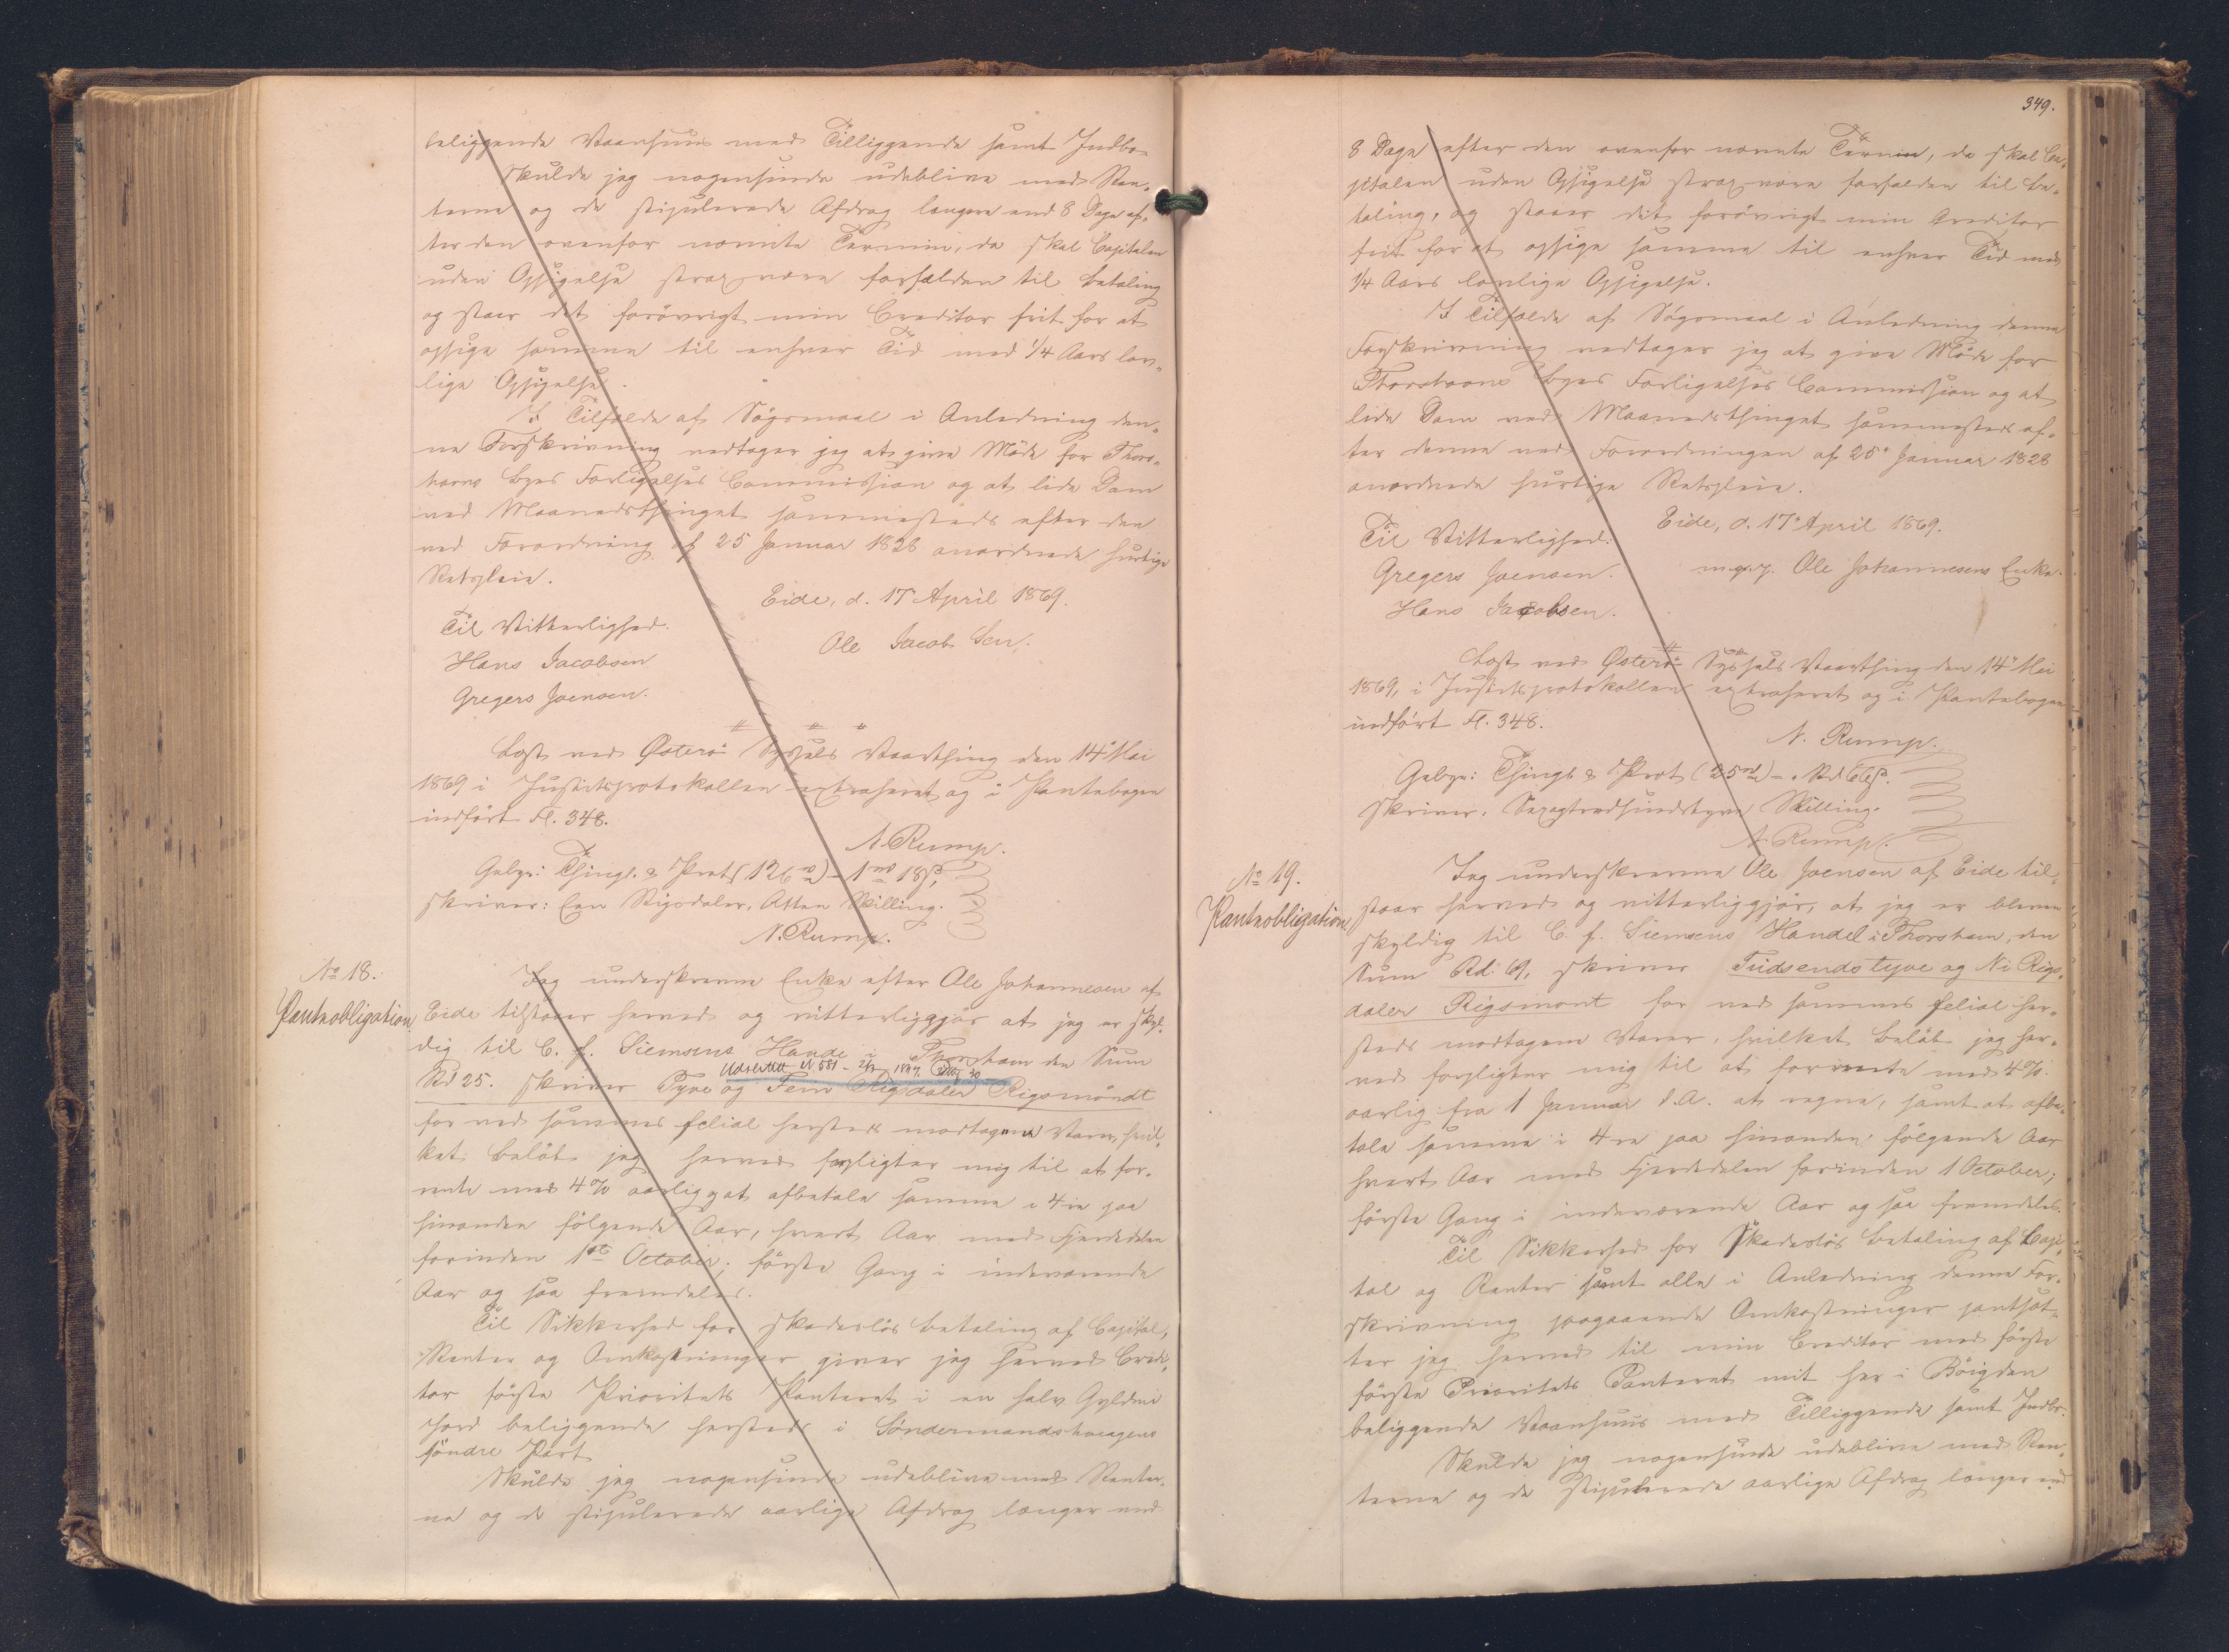 beliggende Vaanhuus med Tilliggende samt Indbo.
Skulde jeg nogensinde udeblive med Ren-
terne og de stipulerede Afdrag længere end 8 Dage ef-
ter den ovenfor nævnte Termin, da skal Capitalen
uden Opsigelse strax være forfalden til Betaling
og staaer det forøvrigt min Creditor frit for at
opsige samme til enhver Tid med 1/4 Aars lov-
lige Opsigelse.
I Tilfælde af Søgsmaal i Anledning den-
ne Forskrivning vedtager jeg at give Møde for Thors-
havns Byes Forligelses Commission og at lide Dom
ved Maanedsthinget sammesteds efter den
ved Forordning af 25 Januar 1828 anordnede hurtige
Retspleie.
Eide, d. 17 April 1869.
Til Vitterlighed.
Ole Jacob Sen.
Hans Jacobsen
Gregers Joensen.
Læst ved Østerø Syssels Vaarthing den 14 Mai
1869 i Justitsprotokollen extraheret og i Pantebogen
indført Fl. 348.
N. Rump.
Gebyr: Thingl. & Prot (126) - 1 rd 18 s,
skriver: Een Rigsdaler, Atten Skilling.
N. Rump.
No 18.
Panteobligation
Jeg underskrevne Enke efter Ole Johannesen af
Eide tilstaaer herved og vitterliggjør at jeg er skyl-
dig til C. f. Siemsens Hande i Thorshavn den Sum
Udslettet N 551 - 2/3 1897.
Rd 25. skriver Tyve og Fem Rigsdaler Rigsmøndt
for ved sammes felial hersteds modtagne Varer, hvil-
ket Beløb jeg herved forpligter mig til at for-
rente med 4% aarlig og at afbetale samme i 4re paa
hinanden følgende Aar, hvert Aar med Fjerdedelen
forinden 1ste October; første Gang i indeværende
Aar og saa fremdeles.
Til Sikkerhed for skadesløs Betaling af Capital,
Renter og Omkostninger giver jeg herved Credi-
tor første Prioritets Panteret i en halv Gylden
Jord beliggende hersteds i Søndermandshaugens
søndre Part
Skulde jeg nogensinde udeblive med Renter-
ne og de stipulerede aarlige Afdrag længer end
349.
8 Dage efter den ovenfor nævnte Termin, da skal Ca-
pitalen uden Opsigelse strax være forfalden til Be-
taling, og staaer det forøvrigt min Creditor
frit for at opsige samme til enhver Tid med
1/4 Aars lovlige Opsigelse.
I Tilfælde af Søgsmaal i Anledning denne
Forskrivning vedtager jeg at give Møde for
Thorshavns Byes Forligelses Commission og at
lide Dom ved Maanedsthinget sammesteds ef-
ter denne ved Forordningen af 25 Januar 1828
anordnede hurtige Retspleie.
Eide, d. 17 April 1869.
Til Vitterlighed:
m. p. P. Ole Johannesens Enke.
Gregers Joensen.
Hans Jacobsen.
Læst ved Østerø Syssels Vaarthing den 14 Mai
1869, i Justitsprotokollen extraheret og i Pantebogen
indført Fl. 348.
N. Rump.
Gebyr: Thingl. & Prot (25) - Rd 66 s.
skriver. Sexogtredsindstyve Skilling.
N. Rump.
No 19.
Panteobligation
Jeg underskrevne Ole Joensen af Eide til-
staar herved og vitterliggjør, at jeg er bleven
skyldig til C. f. Siemsens Handel i Thorshavn, den
Sum Rd. 69, skriver Tridsendstyve og Ni Rigs-
daler Rigsmønt for ved sammes felial her-
steds modtagne Varer, hvilket Beløb jeg her-
ved forpligter mig til at forrente med 4%
aarlig fra 1 Januar d.A. at regne, samt at afbe-
tale samme i 4re paa hinanden følgende Aar
hvert Aar med Fjerdedelen forinden 1 October;
første Gang i indeværende Aar og saa fremdeles.
Til Sikkerhed for skadesløs Betaling af Capi-
tal og Renter samt alle i Anledning denne For-
skrivning paagaaende Omkostninger pantsæt-
ter jeg herved til min Creditor med første
første Prioritets Panteret mit her i Bøigden
beliggende Vaanhuus med Tilliggende samt Indbo.
Skulde jeg nogensinde udeblive med Ren-
terne og de stipulerede aarlige Afdrag længer end